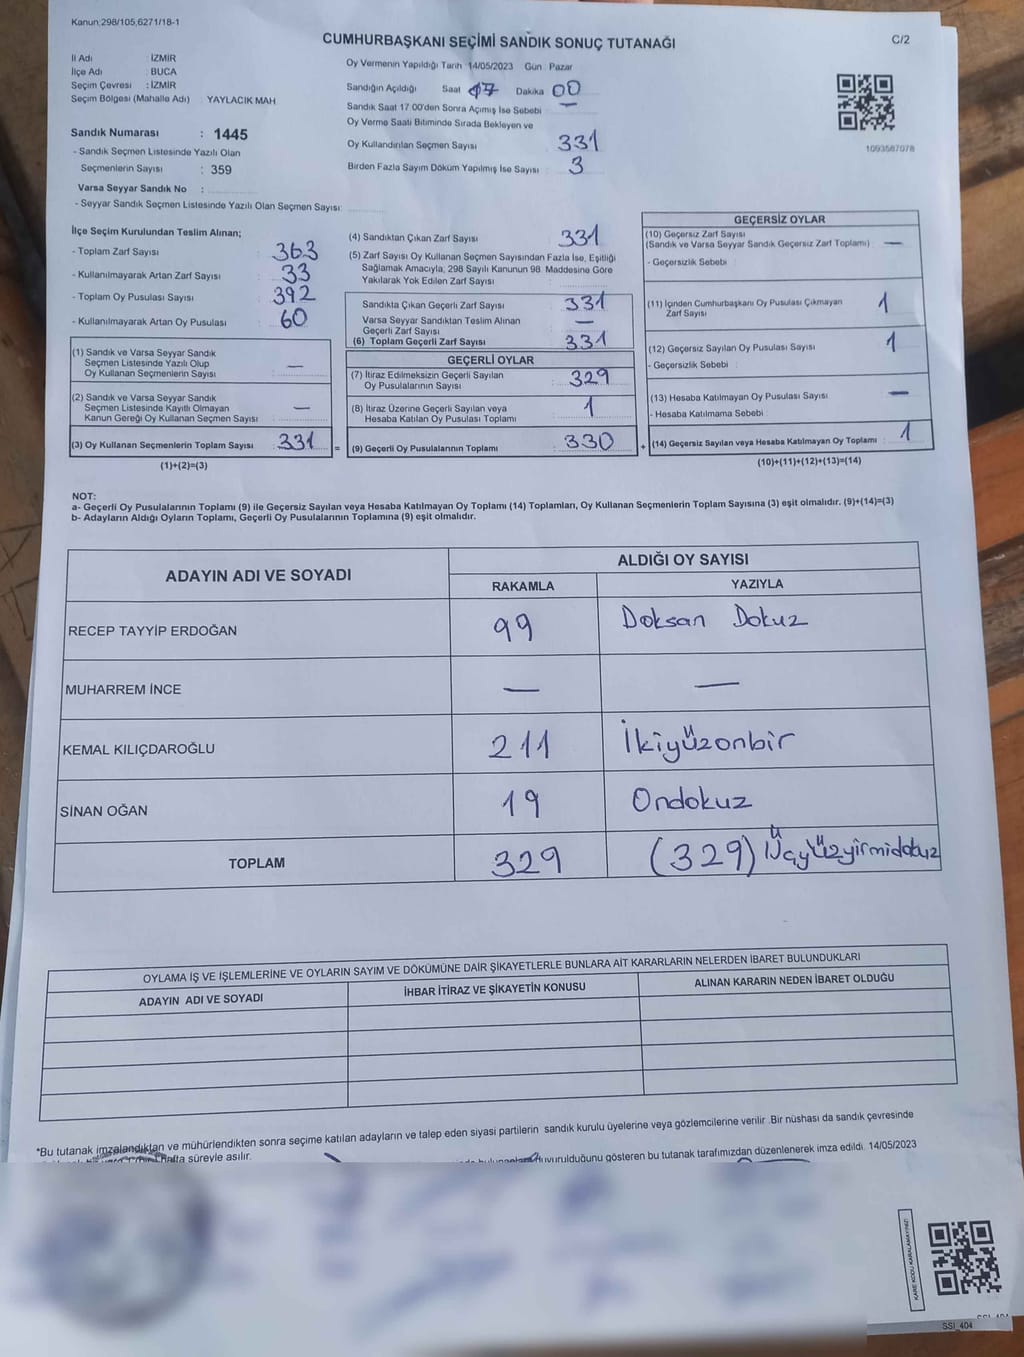 Kanun;298/105,6271/18-1
C/2
CUMHURBAŞKANI SEÇİMİ SANDIK SONUÇ TUTANAĞI
İl Adı : İZMİR
İlçe Adı : BUCA
Seçim Çevresi : İZMİR
Seçim Bölgesi (Mahalle Adı) YAYLACIK MAH.
Sandık Numarası : 1445
- Sandık Seçmen Listesinde Yazılı Olan
Seçmenlerin Sayısı : 359
Varsa Seyyar Sandık No :
- Seyyar Sandık Seçmen Listesinde Yazılı Olan Seçmen Sayısı:
Oy Vermenin Yapıldığı Tarih 14/05/2023 Gün : Pazar
Sandığın Açıldığı Saat 17 Dakika 00
Sandık Saat 17:00'den Sonra Açımış İse Sebebi —
Oy Verme Saati Bitiminde Sırada Bekleyen ve
Oy Kullandırılan Seçmen Sayısı 331
Birden Fazla Sayım Döküm Yapılmış İse Sayısı : 3
1093587078
İlçe Seçim Kurulundan Teslim Alınan;
- Toplam Zarf Sayısı : 363
- Kullanılmayarak Artan Zarf Sayısı : 33
- Toplam Oy Pusulası Sayısı : 392
- Kullanılmayarak Artan Oy Pusulası : 60
(1) Sandık ve Varsa Seyyar Sandık
Seçmen Listesinde Yazılı Olup
Oy Kullanan Seçmenlerin Sayısı : —
(2) Sandık ve Varsa Seyyar Sandık
Seçmen Listesinde Kayıtlı Olmayan
Kanun Gereği Oy Kullanan Seçmen Sayısı : —
(3) Oy Kullanan Seçmenlerin Toplam Sayısı : 331 =
(1)+(2)=(3)
(4) Sandıktan Çıkan Zarf Sayısı 331
(5) Zarf Sayısı Oy Kullanan Seçmen Sayısından Fazla İse, Eşitliği
Sağlamak Amacıyla, 298 Sayılı Kanunun 98. Maddesine Göre
Yakılarak Yok Edilen Zarf Sayısı
Sandıkta Çıkan Geçerli Zarf Sayısı 331
Varsa Seyyar Sandıktan Teslim Alınan
Geçerli Zarf Sayısı —
(6) Toplam Geçerli Zarf Sayısı 331
GEÇERLİ OYLAR
(7) İtiraz Edilmeksizin Geçerli Sayılan
Oy Pusulalarının Sayısı : 329
(8) İtiraz Üzerine Geçerli Sayılan veya
Hesaba Katılan Oy Pusulası Toplamı : 1
(9) Geçerli Oy Pusulalarının Toplamı : 330 +
GEÇERSİZ OYLAR
(10) Geçersiz Zarf Sayısı
(Sandık ve Varsa Seyyar Sandık Geçersiz Zarf Toplamı) : —
- Geçersizlik Sebebi :
(11) İçinden Cumhurbaşkanı Oy Pusulası Çıkmayan
Zarf Sayısı 1
(12) Geçersiz Sayılan Oy Pusulası Sayısı 1
- Geçersizlik Sebebi :
(13) Hesaba Katılmayan Oy Pusulası Sayısı —
- Hesaba Katılmama Sebebi :
(14) Geçersiz Sayılan veya Hesaba Katılmayan Oy Toplamı : 1
(10)+(11)+(12)+(13)=(14)
NOT:
a- Geçerli Oy Pusulalarının Toplamı (9) ile Geçersiz Sayılan veya Hesaba Katılmayan Oy Toplamı (14) Toplamları, Oy Kullanan Seçmenlerin Toplam Sayısına (3) eşit olmalıdır. (9)+(14)=(3)
b- Adayların Aldığı Oyların Toplamı, Geçerli Oy Pusulalarının Toplamına (9) eşit olmalıdır.
ADAYIN ADI VE SOYADI
ALDIĞI OY SAYISI
RAKAMLA YAZIYLA
RECEP TAYYİP ERDOĞAN 99 Doksan Dokuz
MUHARREM İNCE — —
KEMAL KILIÇDAROĞLU 211 İkiyüzonbir
SİNAN OĞAN 19 Ondokuz
TOPLAM 329 (329) Üçyüzyirmidokuz
OYLAMA İŞ VE İŞLEMLERİNE VE OYLARIN SAYIM VE DÖKÜMÜNE DAİR ŞİKAYETLERLE BUNLARA AİT KARARLARIN NELERDEN İBARET BULUNDUKLARI
ADAYIN ADI VE SOYADI İHBAR İTİRAZ VE ŞİKAYETİN KONUSU ALINAN KARARIN NEDEN İBARET OLDUĞU
*Bu tutanak imzalandıktan ve mühürlendikten sonra seçime katılan adayların ve talep eden siyasi partilerin sandık kurulu üyelerine veya gözlemcilerine verilir .Bir nüshası da sandık çevresinde
hafta süreyle asılır. duyurulduğunu gösteren bu tutanak tarafımızdan düzenlenerek imza edildi. 14/05/2023
KARE KODU KARALAMAYINIZ!
SSI_404